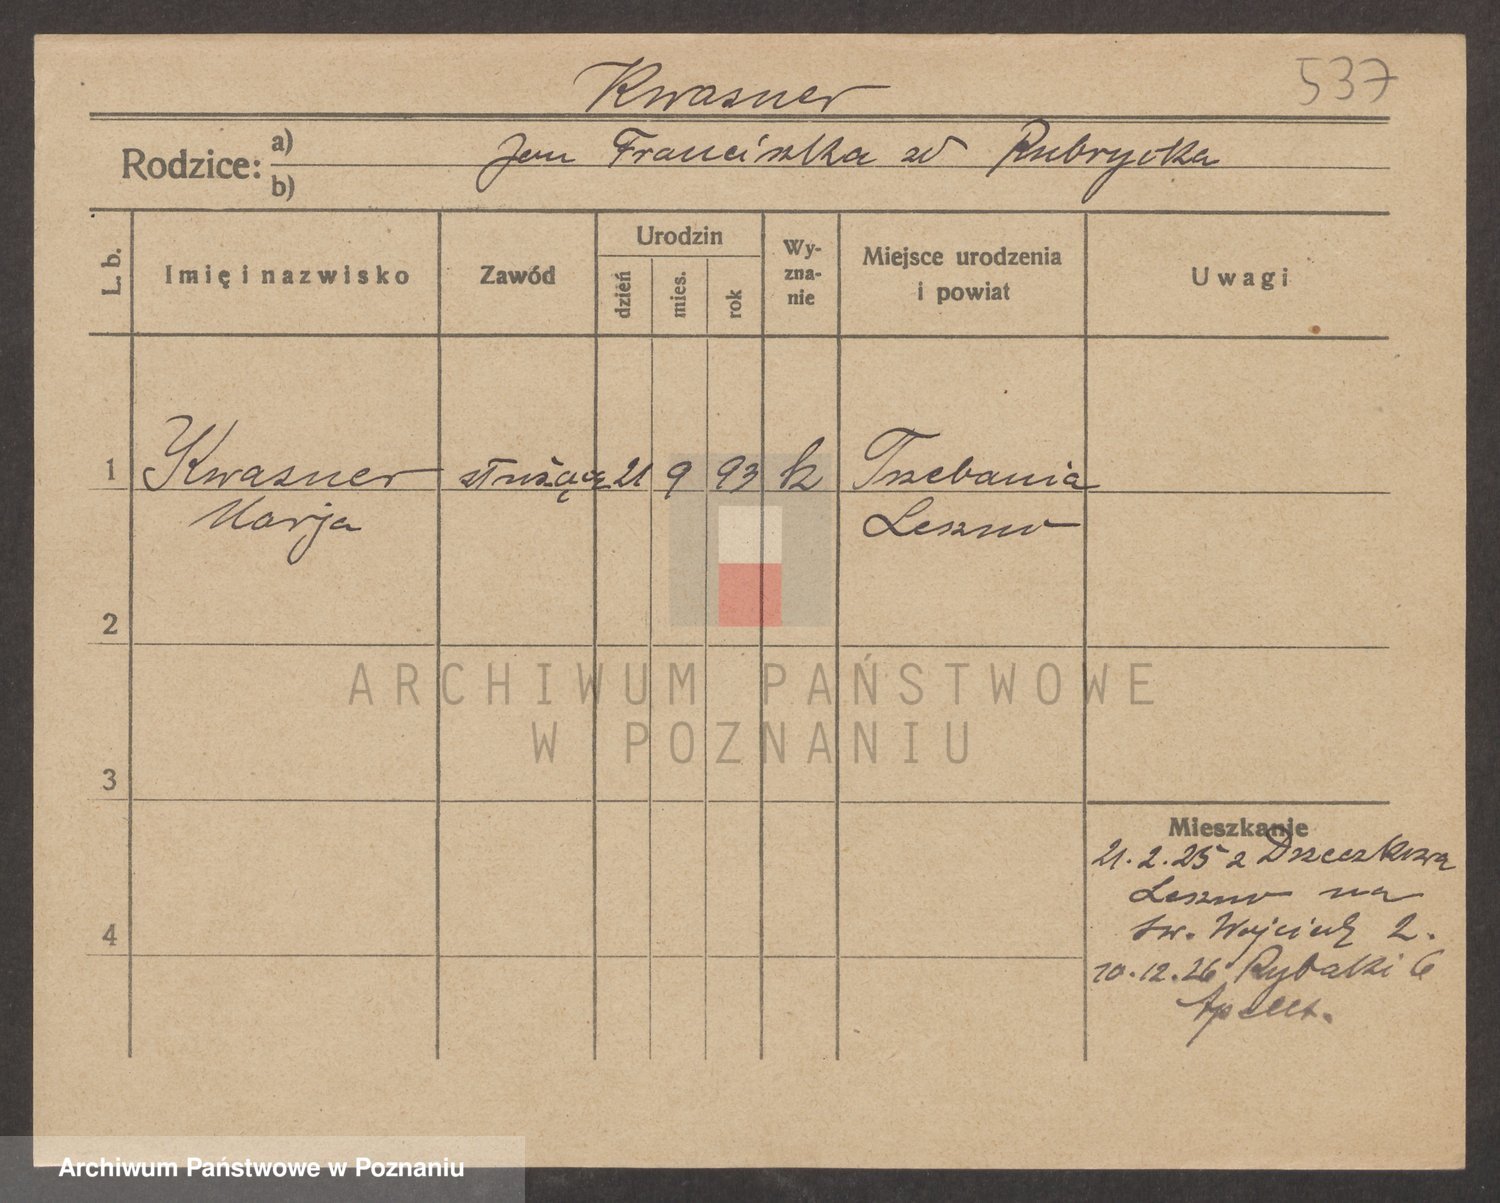 Kwasner
537
Rodzice: a) Jan Franciszka zd Rubrycka
b)
L. b.
Imię i nazwisko
Zawód
Urodzin
dzień
mies.
rok
Wy-
zna-
nie
Miejsce urodzenia
i powiat
Uwagi
1 Kwasner służącą 21 9 93 k Trzebania
Marja Leszno
2
3
4
Mieszkanie
21.2.25 z Drzeczkowa
Leszno na
św. Wojciech 2.
10.12.26 Rybaki 6
ARCHIWUM PAŃSTWOWE
W POZNANIU
Archiwum Państwowe w Poznaniu